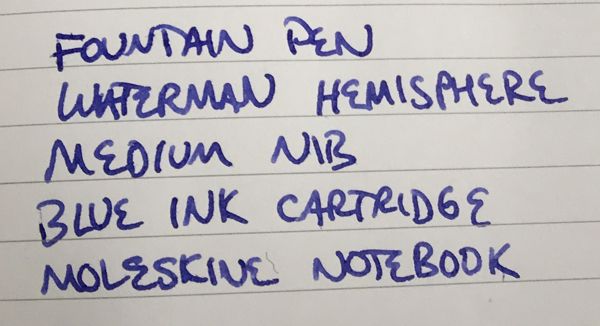 FOUNTAIN PEN
WATERMAN HEMISPHERE
MEDIUM NIB
BLUE INK CARTRIDGE
MOLESKINE NOTEBOOK